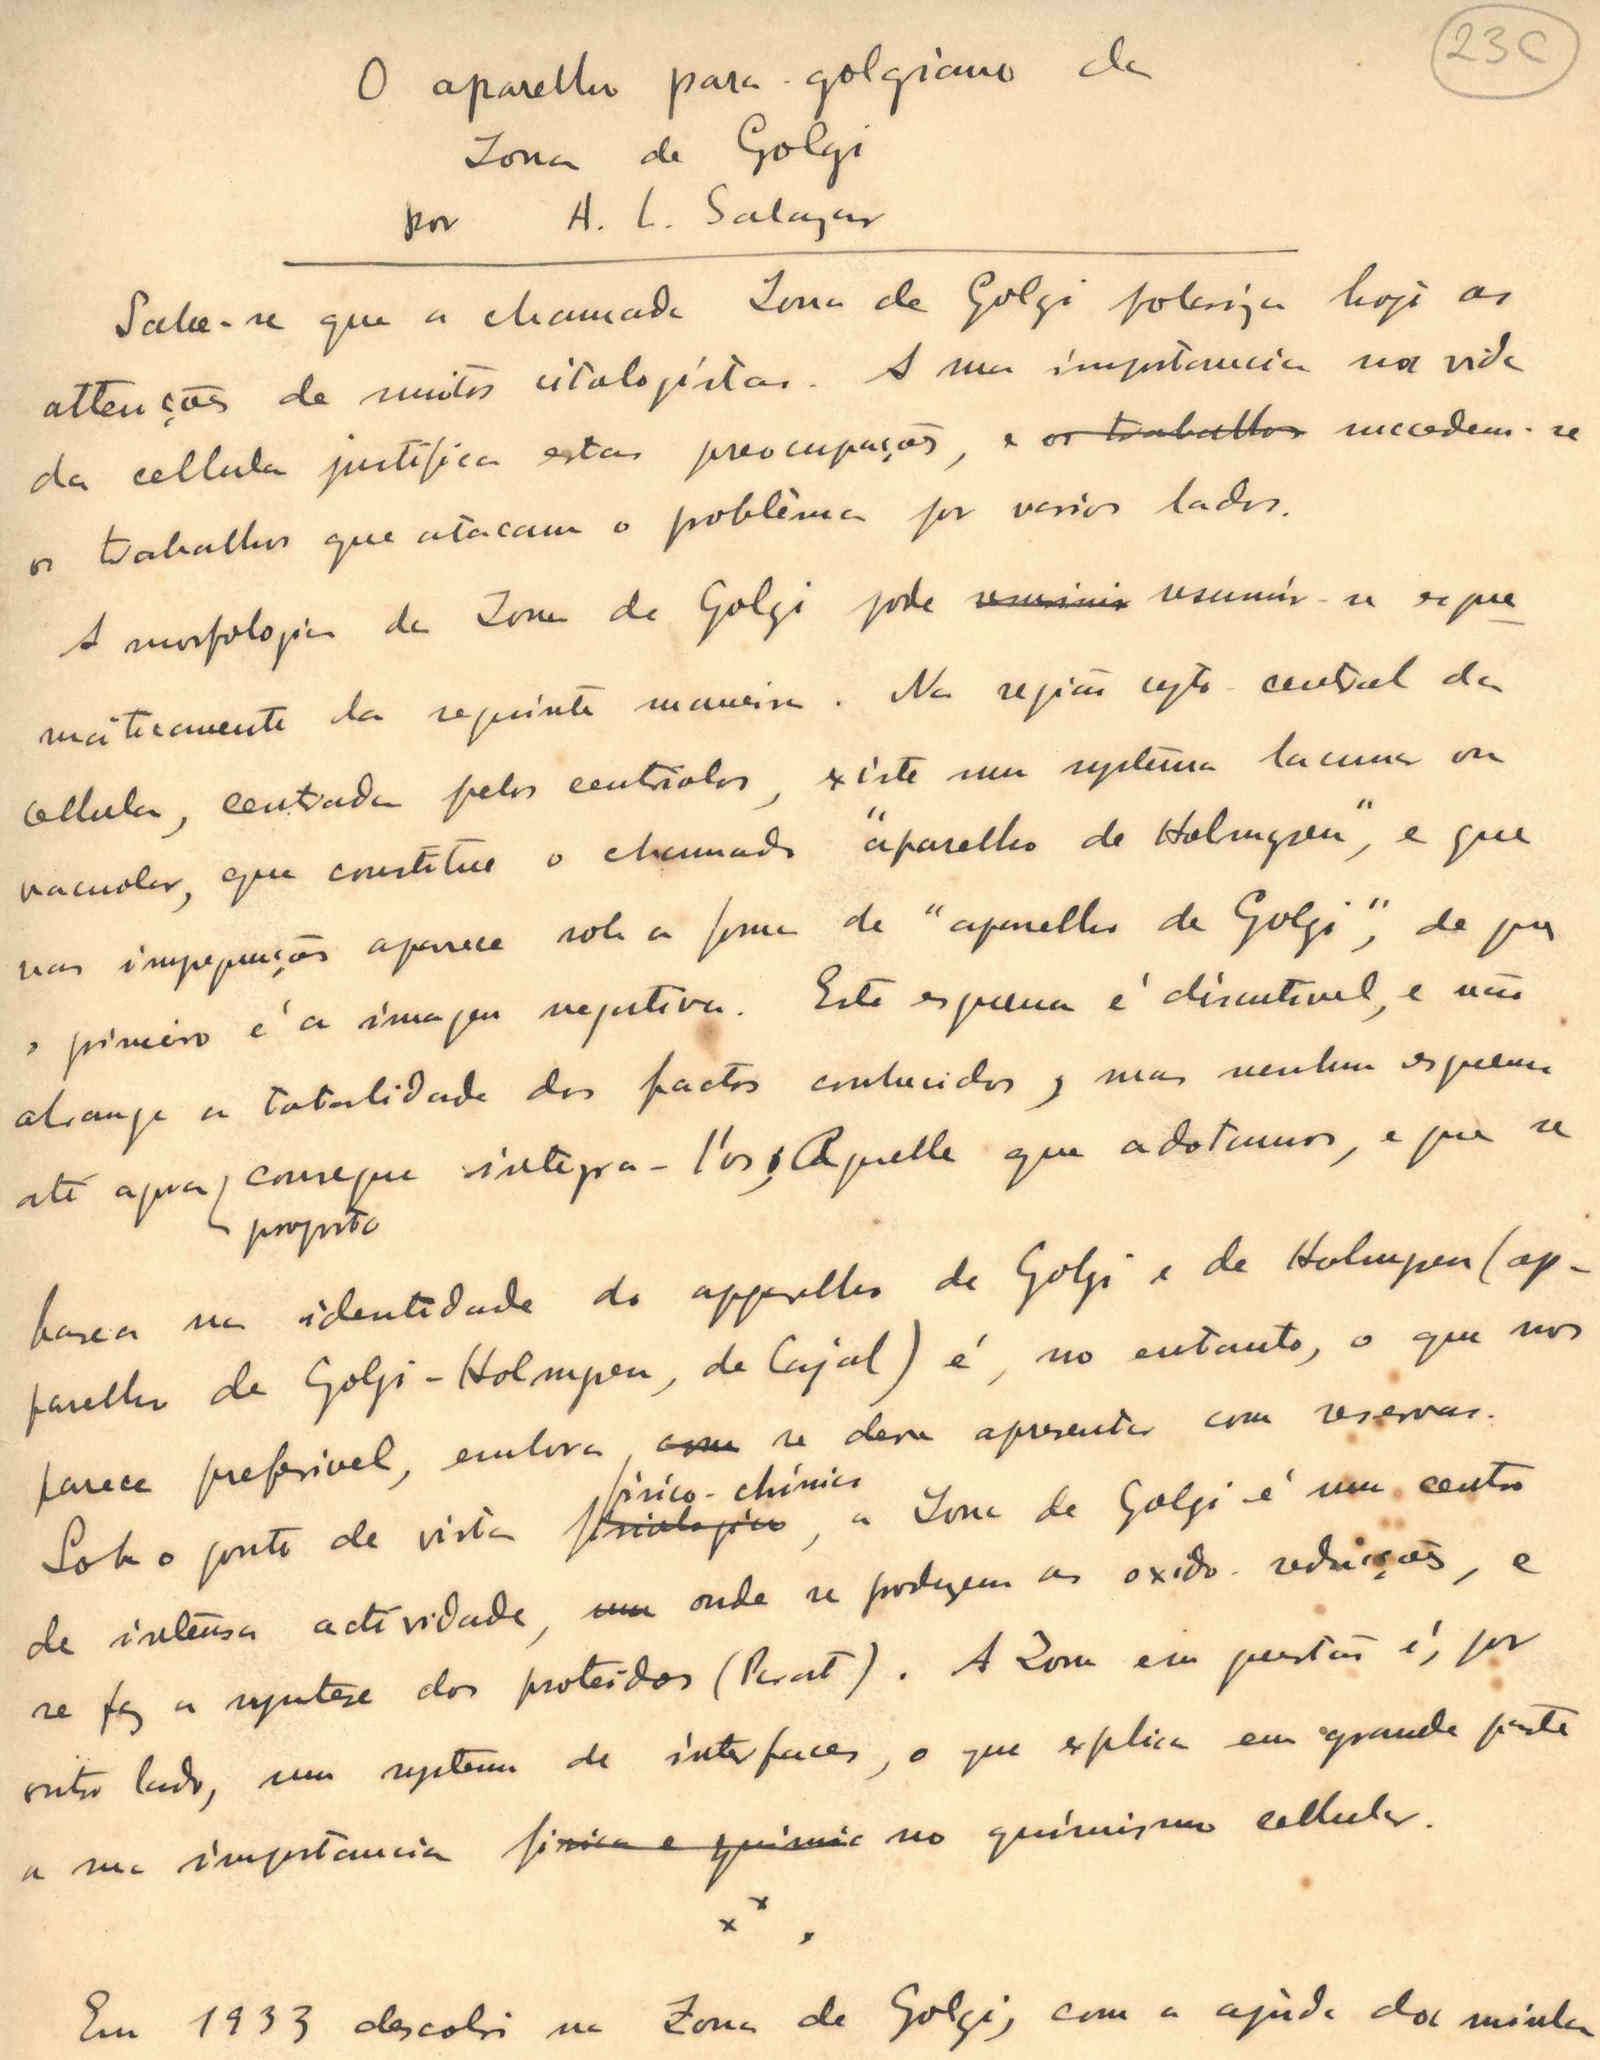 23C
O aparelho para-golgiano da
Zona de Golgi
por A. L. Salazar
Sabe-se que a chamada Zona de Golgi polariza hoje as
attenções de muitos citologistas. A sua importancia na vida
da cellula justifica estas preocupações, e os trabalhos succedem-se
os trabalhos que atacam o problêma por varios lados.
A morfologia da Zona de Golgi pode resumir-se esque
máticamente da seguinte maneira. Na região cyto-central da
cellula, centrada pelos centriolos, existe um systêma lacunar ou
vacuolar, que constitue o chamado "aparelho de Holmgren", e que
nas impregnações aparece sob a forma de "aparelho de Golgi", de que
o primeiro é a imagem negativa. Este esquema é discutivel, e não
abrange a totalidade dos factos conhecidos, mas nenhum esquema
até agora proposto consegue integra-l'os; Aquelle que adotamos, e que se
basea na identidade do apparelho de Golgi e de Holmgren (ap-
parelho de Golgi-Holmgren, de Cajal) é, no entanto, o que nos
parece preferivel, embora, com se deva apresentar com reservas.
Sob o ponto de vista fisiologico fisico-chimico, a Zona de Golgi é um centro
de intensa actividade, um onde se produzem as oxido-reducções, e
se faz a syntese dos proteidos (Parat). A Zona em questão é, por
outro lado, um systema de interfaces, o que explica em grande parte
a sua importancia fisica e quimic no quimismo cellular.
x x ,
Em 1933 descobri na Zona de Golgi, com a ajuda da minha